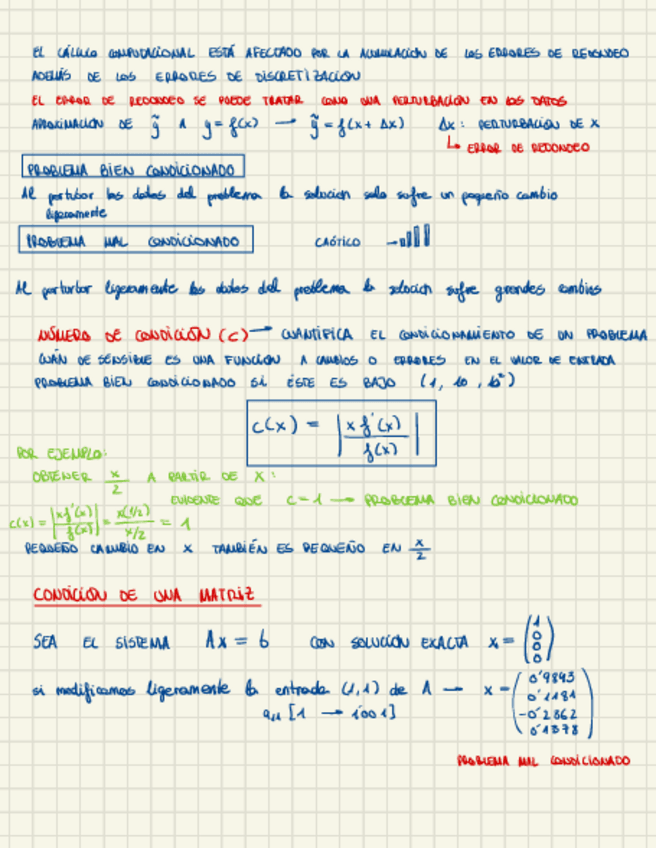 EL CÁLCULO COMPUTACIONAL ESTÁ AFECTADO POR LA ACUMULACIÓN DE LOS ERRORES DE REDONDEO
ADEMÁS DE LOS ERRORES DE DISCRETIZACIÓN
EL ERROR DE REDONDEO SE PUEDE TRATAR COMO UNA PERTURBACIÓN EN LOS DATOS
APROXIMACIÓN DE ỹ A y = f(x) → ỹ = f(x + Δx) Δx: PERTURBACIÓN DE X
↳ ERROR DE REDONDEO
PROBLEMA BIEN CONDICIONADO
Al perturbar los datos del problema la solución solo sufre un pequeño cambio
ligeramente
PROBLEMA MAL CONDICIONADO CAÓTICO →
Al perturbar ligeramente los datos del problema la solución sufre grandes cambios
NÚMERO DE CONDICIÓN (C) → CUANTIFICA EL CONDICIONAMIENTO DE UN PROBLEMA
CUÁN DE SENSIBLE ES UNA FUNCIÓN A CAMBIOS O ERRORES EN EL VALOR DE ENTRADA
PROBLEMA BIEN CONDICIONADO SI ÉSTE ES BAJO (1, 10, 10²)
c(x) = | x f'(x) / f(x) |
POR EJEMPLO:
OBTENER x/2 A PARTIR DE X:
EVIDENTE QUE C = 1 → PROBLEMA BIEN CONDICIONADO
c(x) = | x f'(x) / f(x) | = x(1/2) / x/2 = 1
PEQUEÑO CAMBIO EN X TAMBIÉN ES PEQUEÑO EN x/2
CONDICIÓN DE UNA MATRIZ
SEA EL SISTEMA Ax = b CON SOLUCIÓN EXACTA x = (1 0 0 0)
si modificamos ligeramente la entrada (1,1) de A → x = (0'9843 0'1181 -0'2362 0'1378)
a₁₁ [1 → 1'001]
PROBLEMA MAL CONDICIONADO